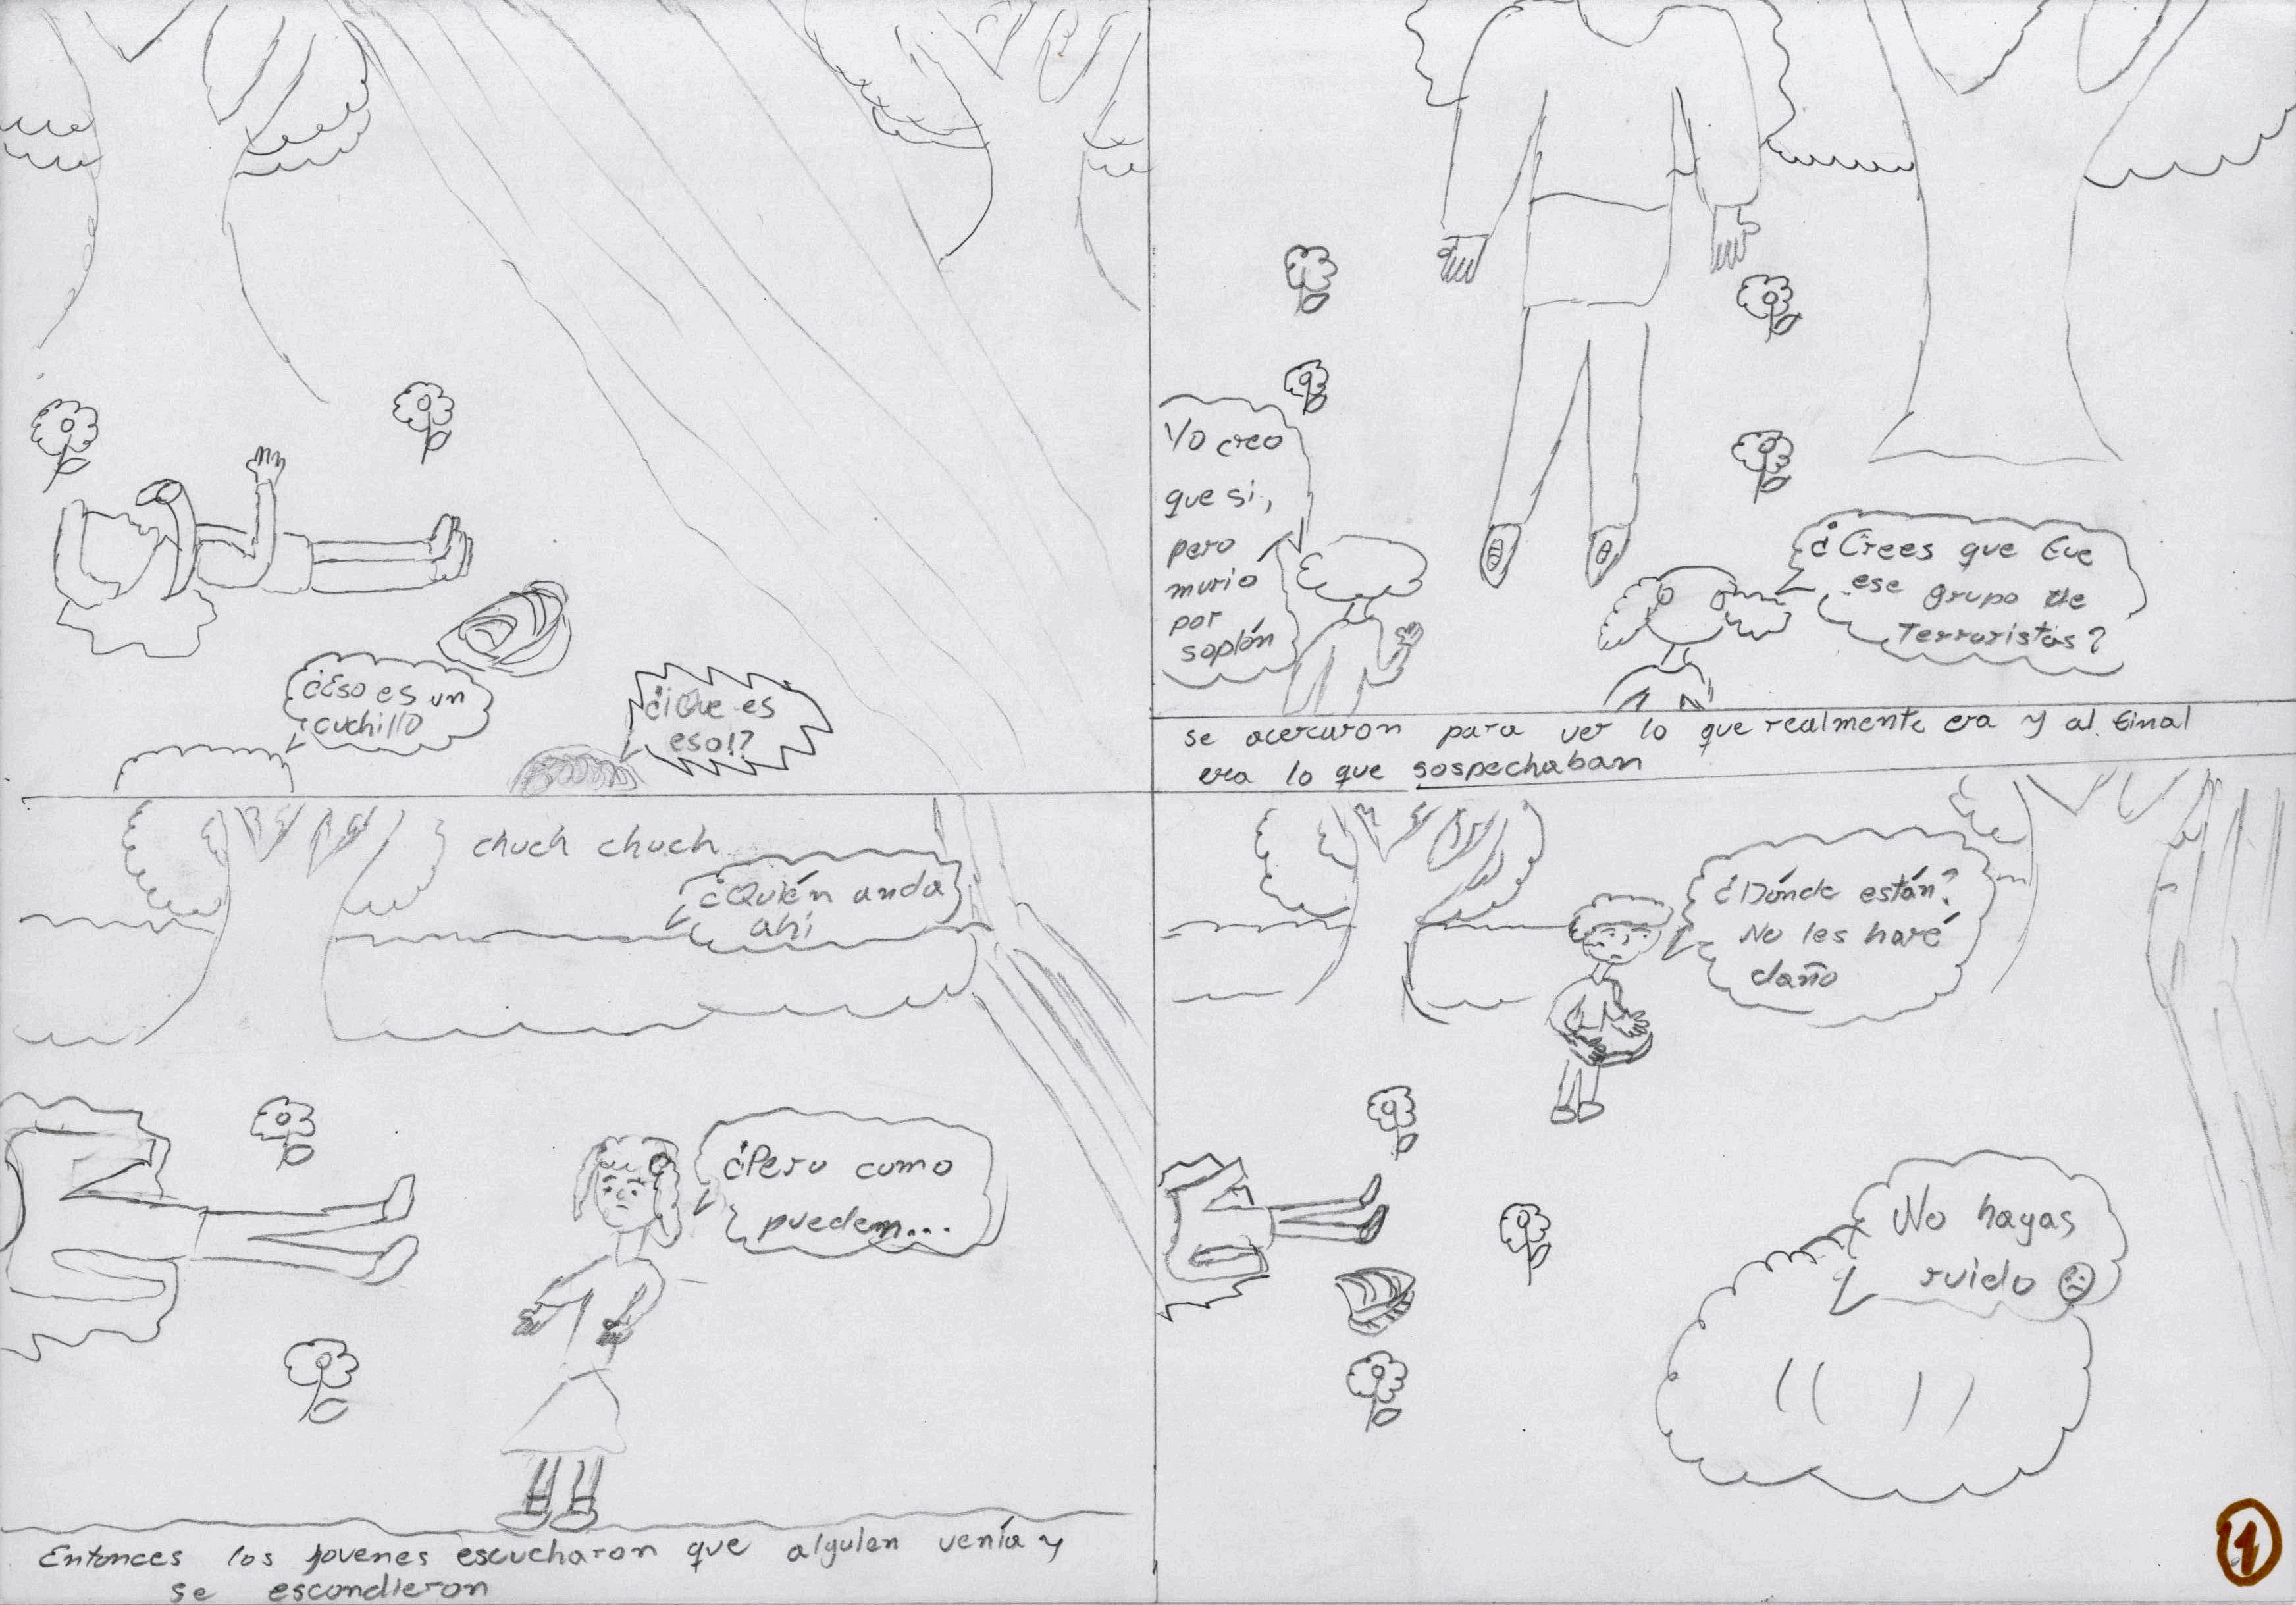 ¿Eso es un
cuchillo
¿¡Que es
eso!?
Yo creo
que si,
pero
murio
por
soplón
¿Crees que fue
ese grupo de
Terroristas?
se acercaron para ver lo que realmente era y al final
era lo que sospechaban
chuch chuch
¿Quién anda
ahí
¿Pero como
pueden...
Entonces los jovenes escucharon que alguien venía y
se escondieron
¿Dónde están?
No les haré
daño
No hagas
ruido
1